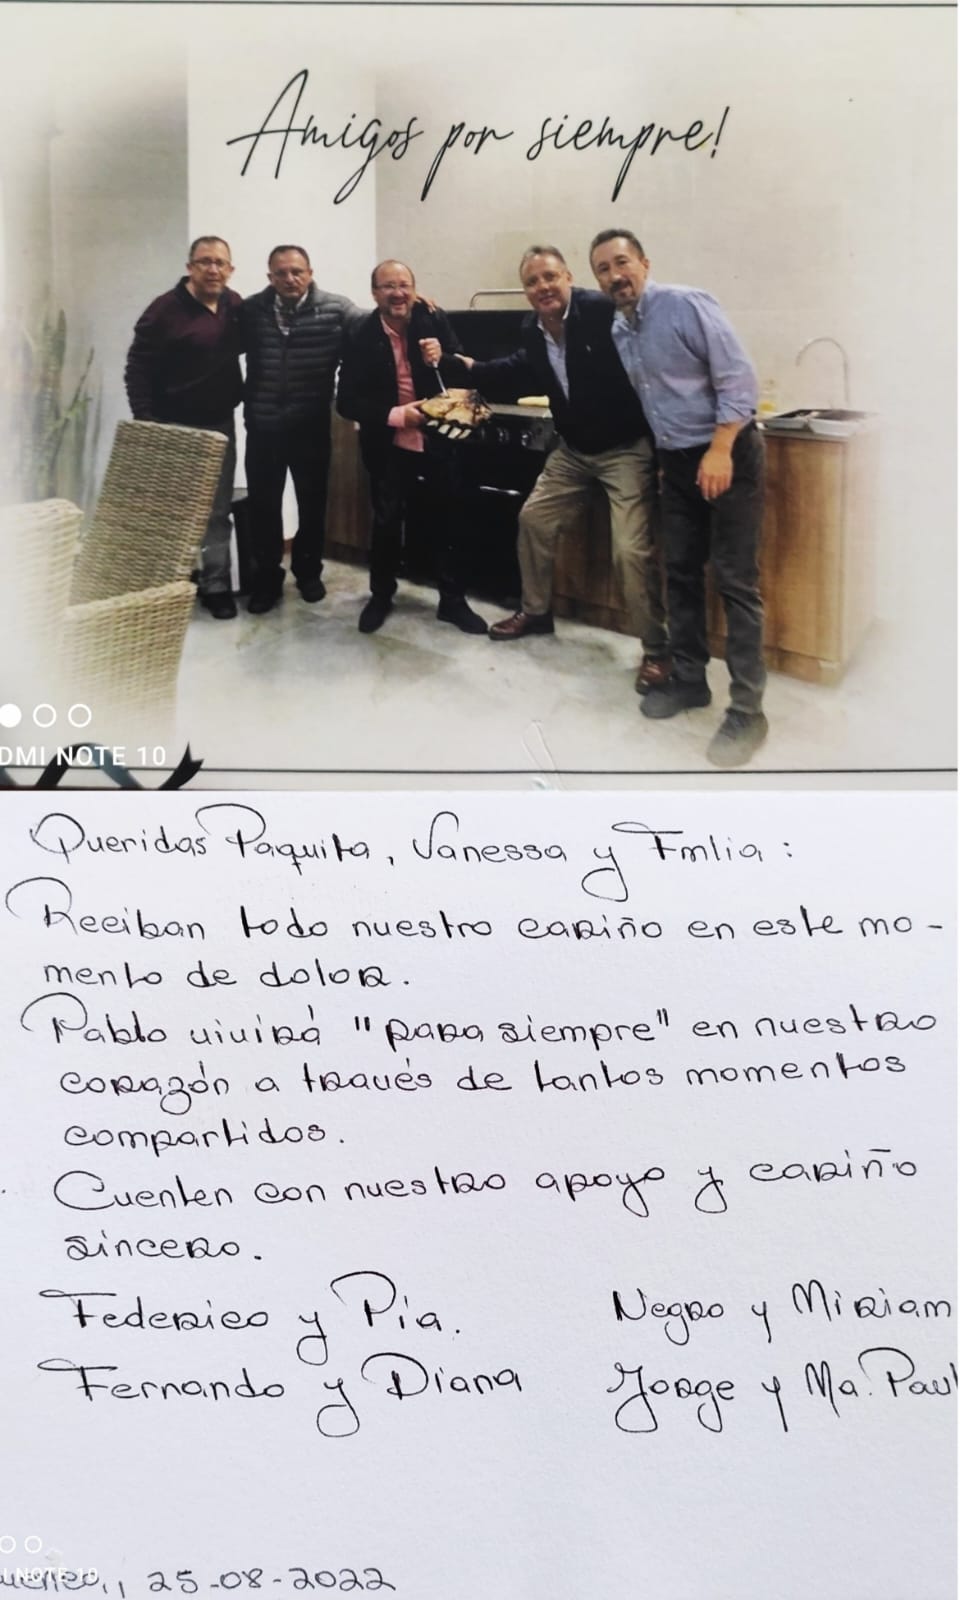 Amigos por siempre!
DMI NOTE 10
Queridas Paquita, Vanessa y Fmlia:
Reciban todo nuestro cariño en este mo-
mento de dolor.
Pablo vivirá "para siempre" en nuestro
corazón a través de tantos momentos
compartidos.
Cuenten con nuestro apoyo y cariño
sincero.
Federico y Pía. Negro y Miriam
Fernando y Diana Jorge y Ma. Paul
I NOTE 10
25-08-2022